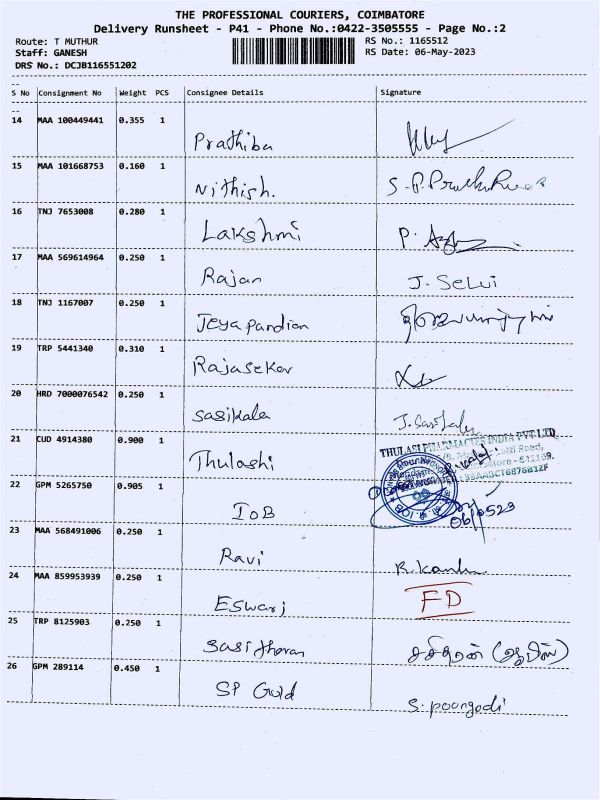 THE PROFESSIONAL COURIERS, COIMBATORE
Delivery Runsheet - P41 - Phone No.:0422-3505555 - Page No.:2
Route: T MUTHUR
Staff: GANESH
DRS No.: DCJB116551202
RS No.: 1165512
RS Date: 06-May-2023
S No Consignment No Weight PCS Consignee Details Signature
14 MAA 100449441 0.355 1 Prathiba
15 MAA 101668753 0.160 1 Nithish.
16 TNJ 7653008 0.280 1 Lakshmi P.
17 MAA 569614964 0.250 1 Rajan J. Selvi
18 TNJ 1167007 0.250 1 Jeyapandian
19 TRP 5441340 0.310 1 Rajasekar
20 HRD 7000076542 0.250 1 Sasikala
21 CUD 4914380 0.900 1 Thulashi
THULASI PHARMACIES INDIA PVT LTD
22 GPM 5265750 0.905 1 IOB
23 MAA 568491006 0.250 1 Ravi
24 MAA 859953939 0.250 1 Eswarj FD
25 TRP 8125903 0.250 1 Sasitharan சசிதரன் (ஆபிஸ்)
26 GPM 289114 0.450 1 SP Gold S. poongodi